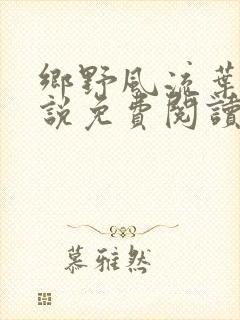 鄉野風流葉
說免費閱讀
慕雅然